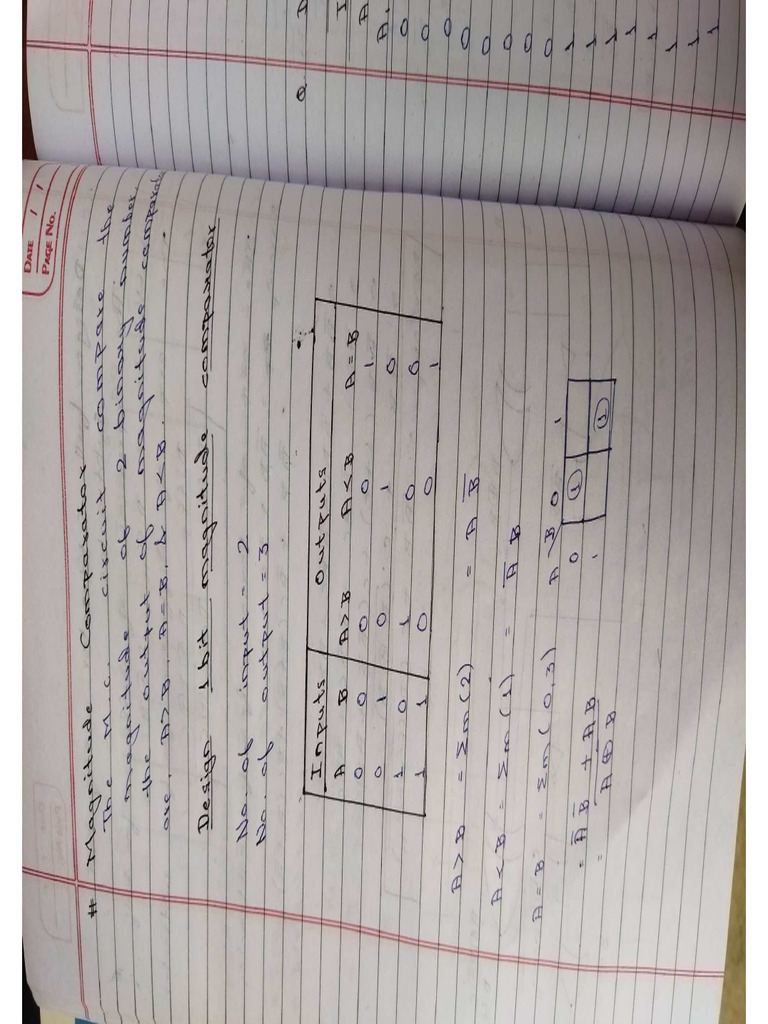 DATE / /
PAGE No.
# Magnitude Comparator
The M.C. circuit compare the
magnitude of 2 binary number.
the output of magnitude
are. A>B, A=B, & A<B.
Design 1 bit magnitude comparator
No. of input = 2
No. of output = 3
Inputs Outputs
A B A>B A<B A=B
0 0 0 0 1
0 1 0 1 0
1 0 1 0 0
1 1 0 0 1
A>B = Σm(2) = A B̅
A<B = Σm(1) = A̅ B
A=B = Σm(0,3)
= A̅ B̅ + AB
= A̅ ⊕ B̅
A B 0 1
0 1
1 1
Q
A
0
0
0
0
0
0
0
0
1
1
1
1
1
1
1